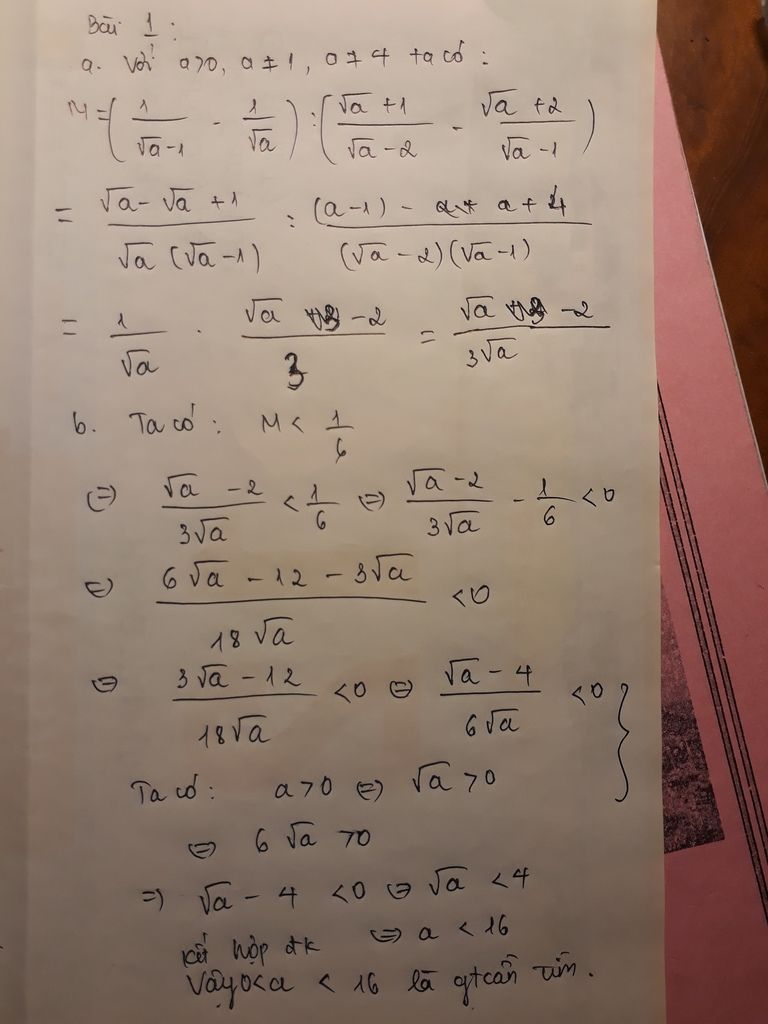 Bài 1:
a. Với a>0, a ≠ 1, a ≠ 4 ta có:
M = (1/(√a-1) - 1/√a) : ((√a+1)/(√a-2) - (√a+2)/(√a-1))
= (√a - √a + 1)/(√a(√a-1)) : ((a-1) - a + 4)/((√a-2)(√a-1))
= 1/√a . (√a - 2)/3 = (√a - 2)/(3√a)
b. Ta có: M < 1/6
⇔ (√a - 2)/(3√a) < 1/6 ⇔ (√a - 2)/(3√a) - 1/6 < 0
⇔ (6√a - 12 - 3√a)/(18√a) < 0
⇔ (3√a - 12)/(18√a) < 0 ⇔ (√a - 4)/(6√a) < 0 }
Ta có: a > 0 ⇔ √a > 0
⇔ 6√a > 0
⇒ √a - 4 < 0 ⇔ √a < 4
⇔ a < 16
Kết hợp đk
Vậy 0<a < 16 là gt cần tìm.